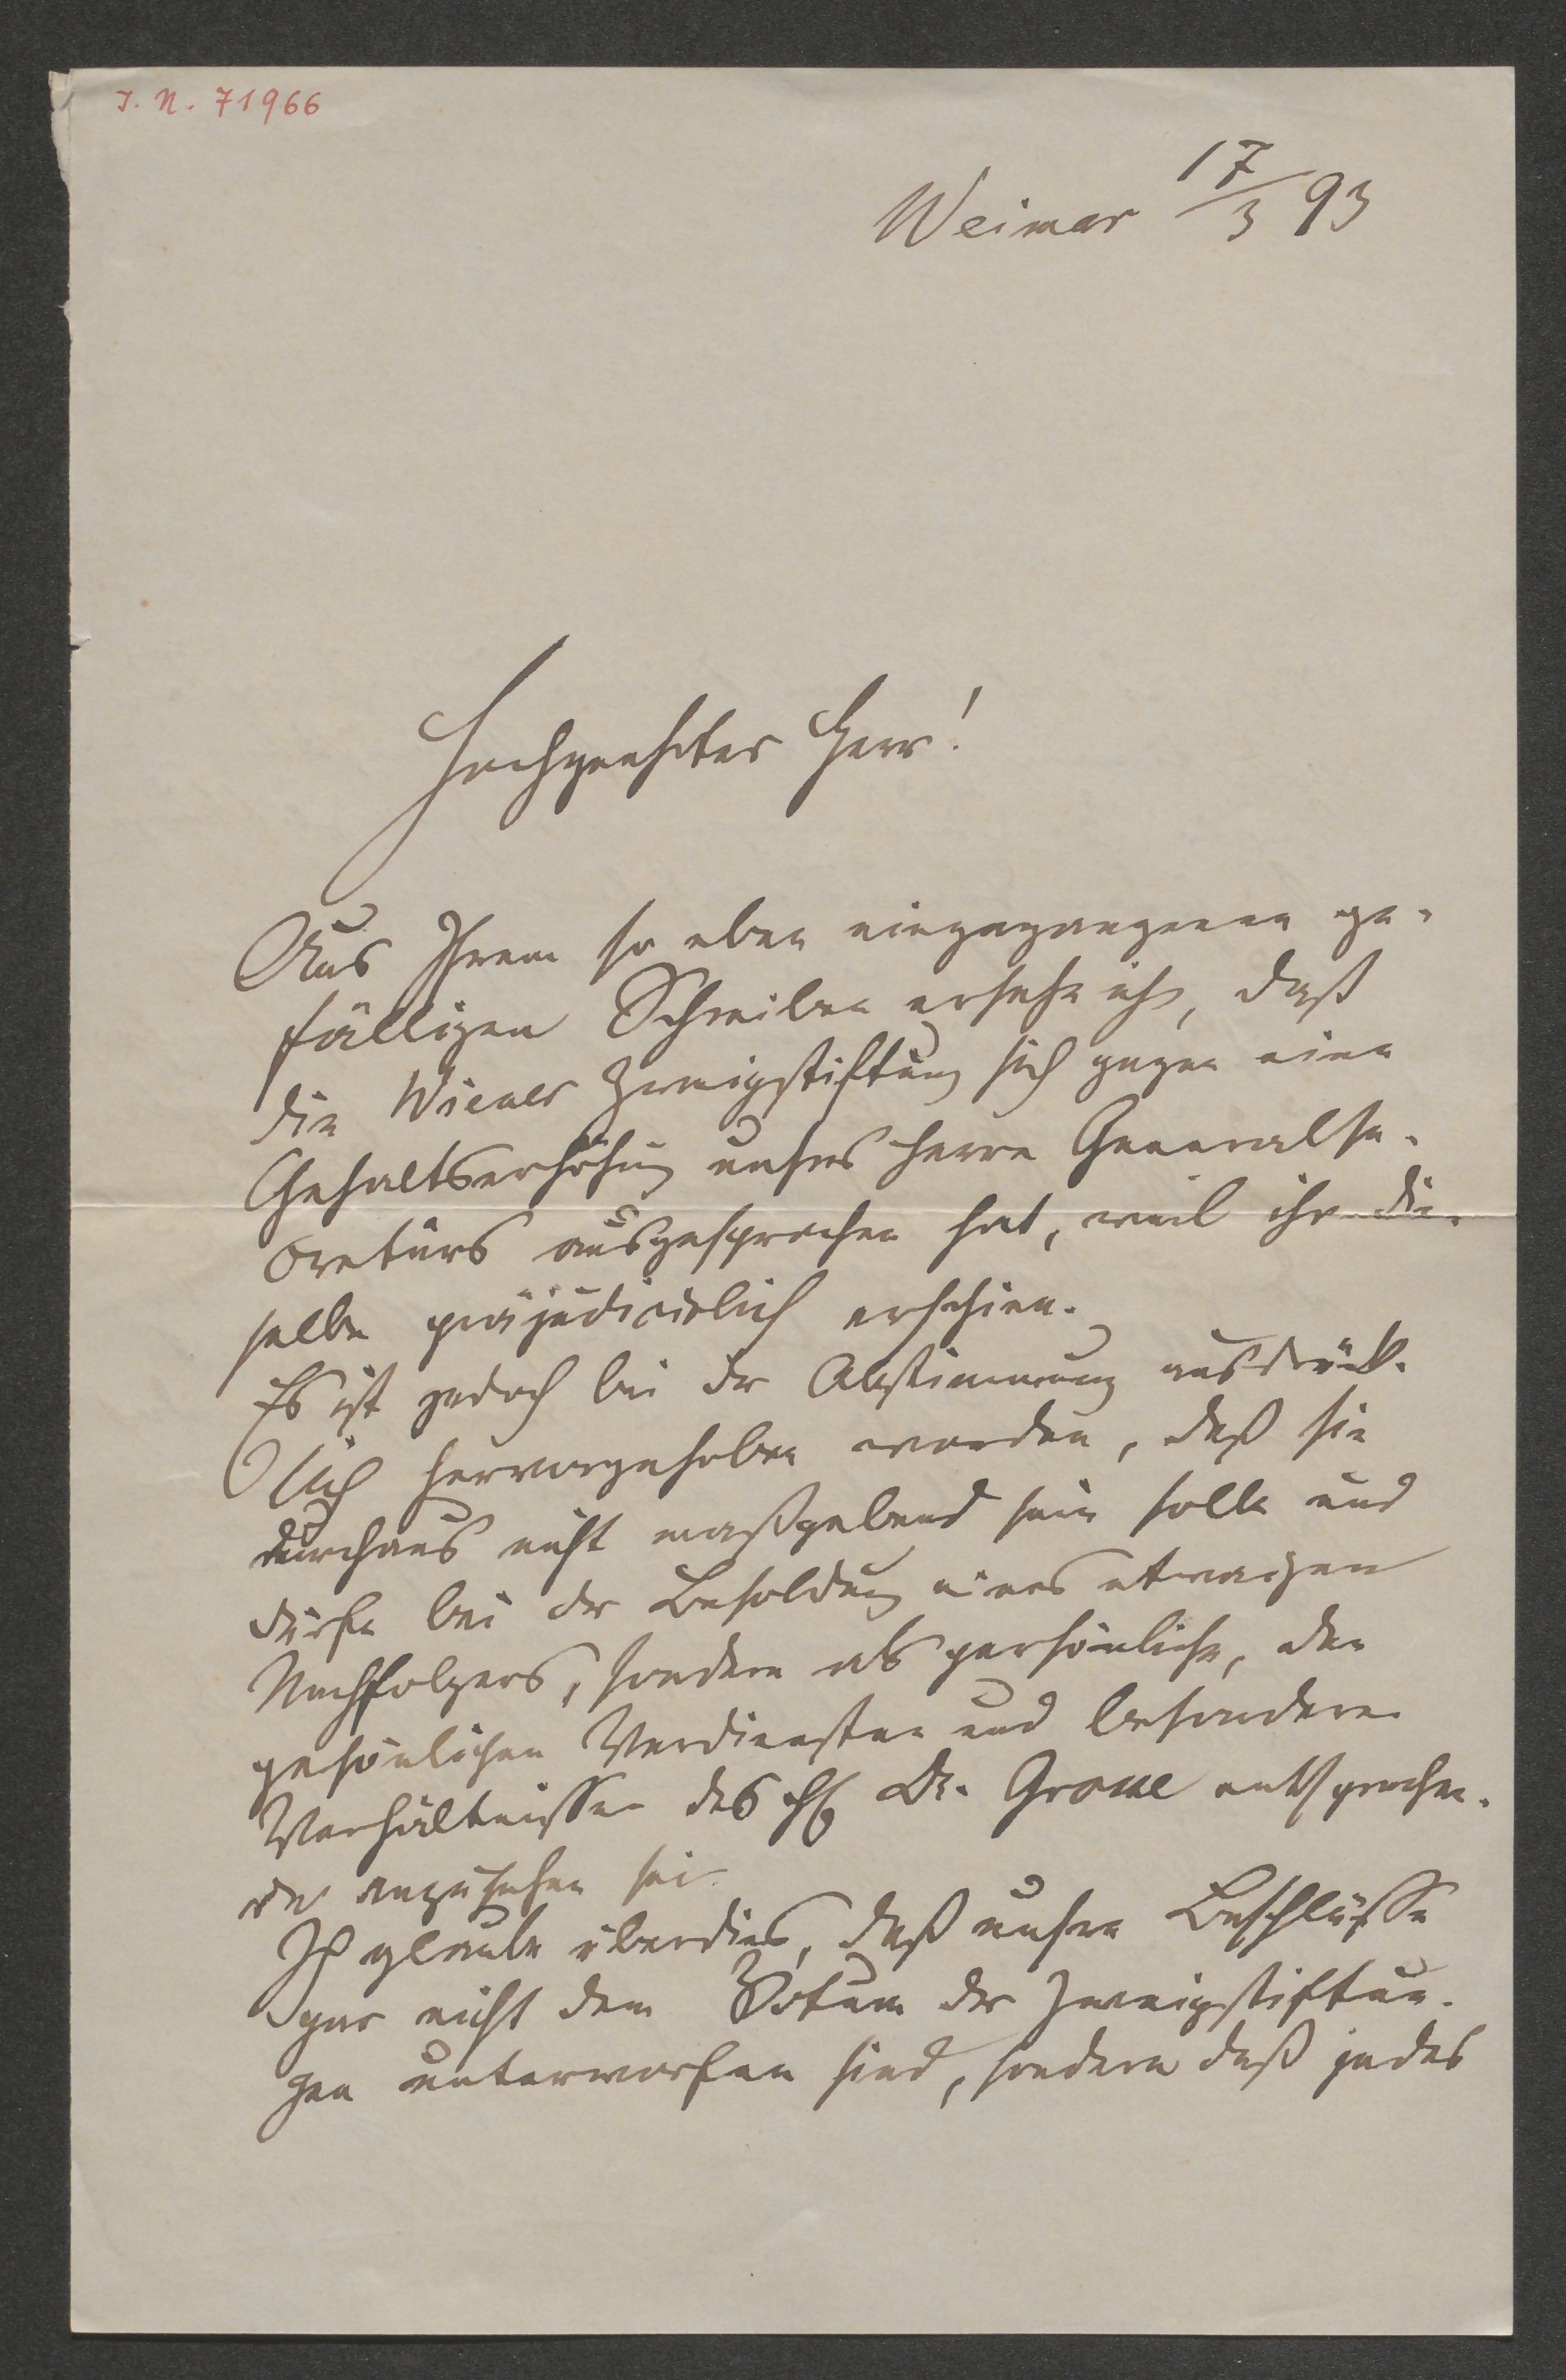 J. N. 71966
Weimar 17/3 93
Hochgeehrter Herr!
Aus Ihrem so eben eingegangenen ge-
fälligen Schreiben ersehe ich, daß
die Wiener Zweigstiftung sich gegen eine
Gehaltserhöhung unsres Herrn Generalse-
cretärs ausgesprochen hat, weil ihr die-
selbe präjudicirlich erschien.
Es ist jedoch bei der Abstimmung ausdrück-
lich hervorgehoben worden, daß sie
durchaus nicht maßgebend sein solle und
dürfe bei der Besoldung eines etwaigen
Nachfolgers, sondern als persönliche, den
persönlichen Verdiensten und besonderen
Verhältnissen des H Dr. Grosse entsprechen-
de anzusehen sei.
Ich glaube überdies, daß unsre Beschlüsse
gar nicht dem Votum der Zweigstiftun-
gen unterworfen sind, sondern daß jedes